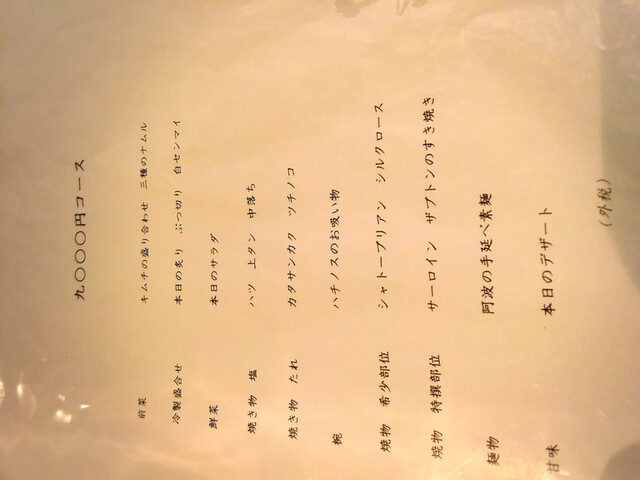 九〇〇〇円コース
前菜 キムチの盛り合わせ 三種のナムル
冷製盛合せ 本日の炙り ぶつ切り 白センマイ
鮮菜 本日のサラダ
焼き物 塩 ハツ 上タン 中落ち
焼き物 たれ カタサンカク ツチノコ
椀 ハチノスのお吸い物
焼物 希少部位 シャトーブリアン シルクロース
焼物 特撰部位 サーロイン ザブトンのすき焼き
麺物 阿波の手延べ素麺
甘味 本日のデザート
(外税)